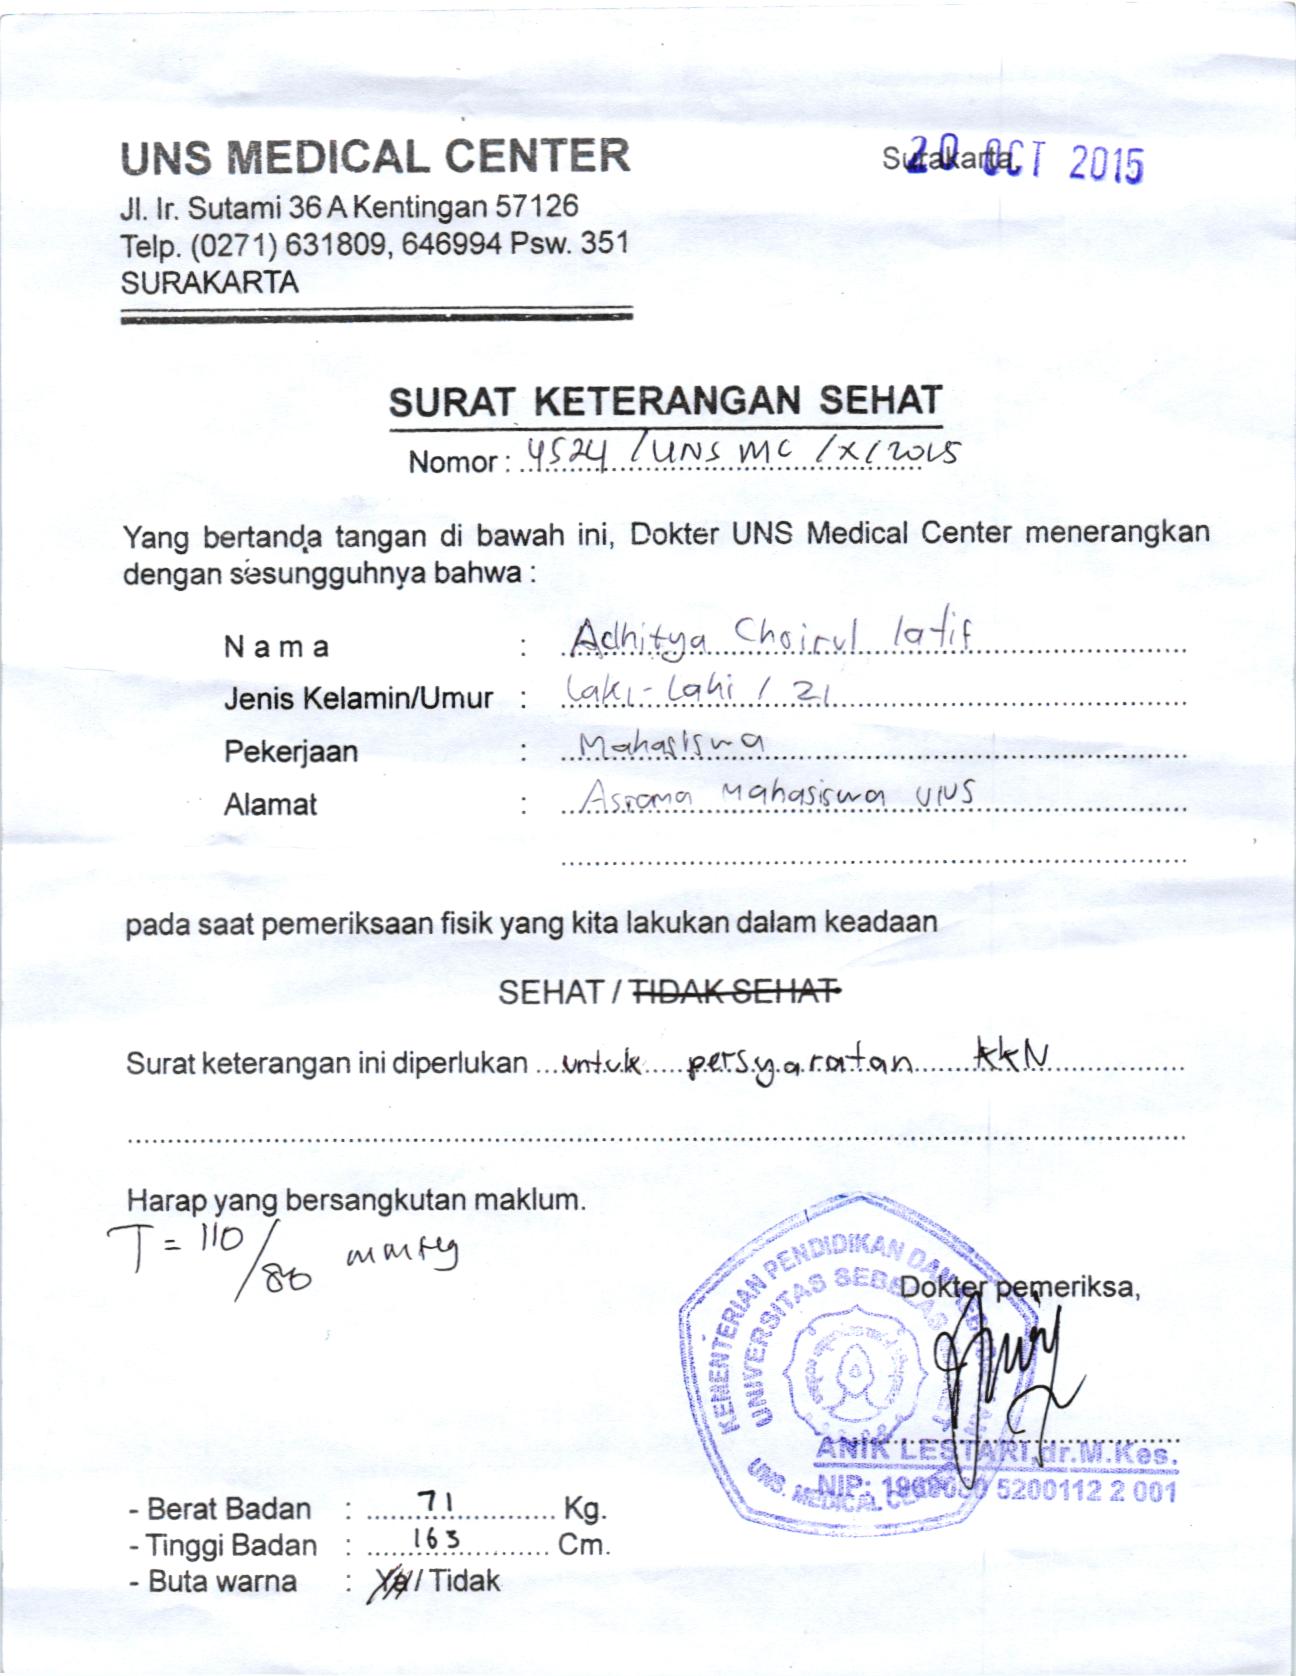 UNS MEDICAL CENTER
Jl. Ir. Sutami 36 A Kentingan 57126
Telp. (0271) 631809, 646994 Psw. 351
SURAKARTA
Surakarta, 20 OCT 2015
SURAT KETERANGAN SEHAT
Nomor : 4524 / UNS MC / X / 2015
Yang bertanda tangan di bawah ini, Dokter UNS Medical Center menerangkan
dengan sesungguhnya bahwa :
Nama : Adhitya Choirul latif
Jenis Kelamin/Umur : Laki-Laki / 21
Pekerjaan : Mahasiswa
Alamat : Asrama Mahasiswa UNS
pada saat pemeriksaan fisik yang kita lakukan dalam keadaan
SEHAT / TIDAK SEHAT
Surat keterangan ini diperlukan untuk persyaratan KKN
Harap yang bersangkutan maklum.
T = 110/80 mmHg
Dokter pemeriksa,
KEMENTERIAN PENDIDIKAN DAN
UNIVERSITAS SEBELAS
UNS. MEDICAL CENTER
ANIK LESTARI,dr.M.Kes.
NIP: 5200112 2 001
- Berat Badan : 71 Kg.
- Tinggi Badan : 163 Cm.
- Buta warna : Ya / Tidak